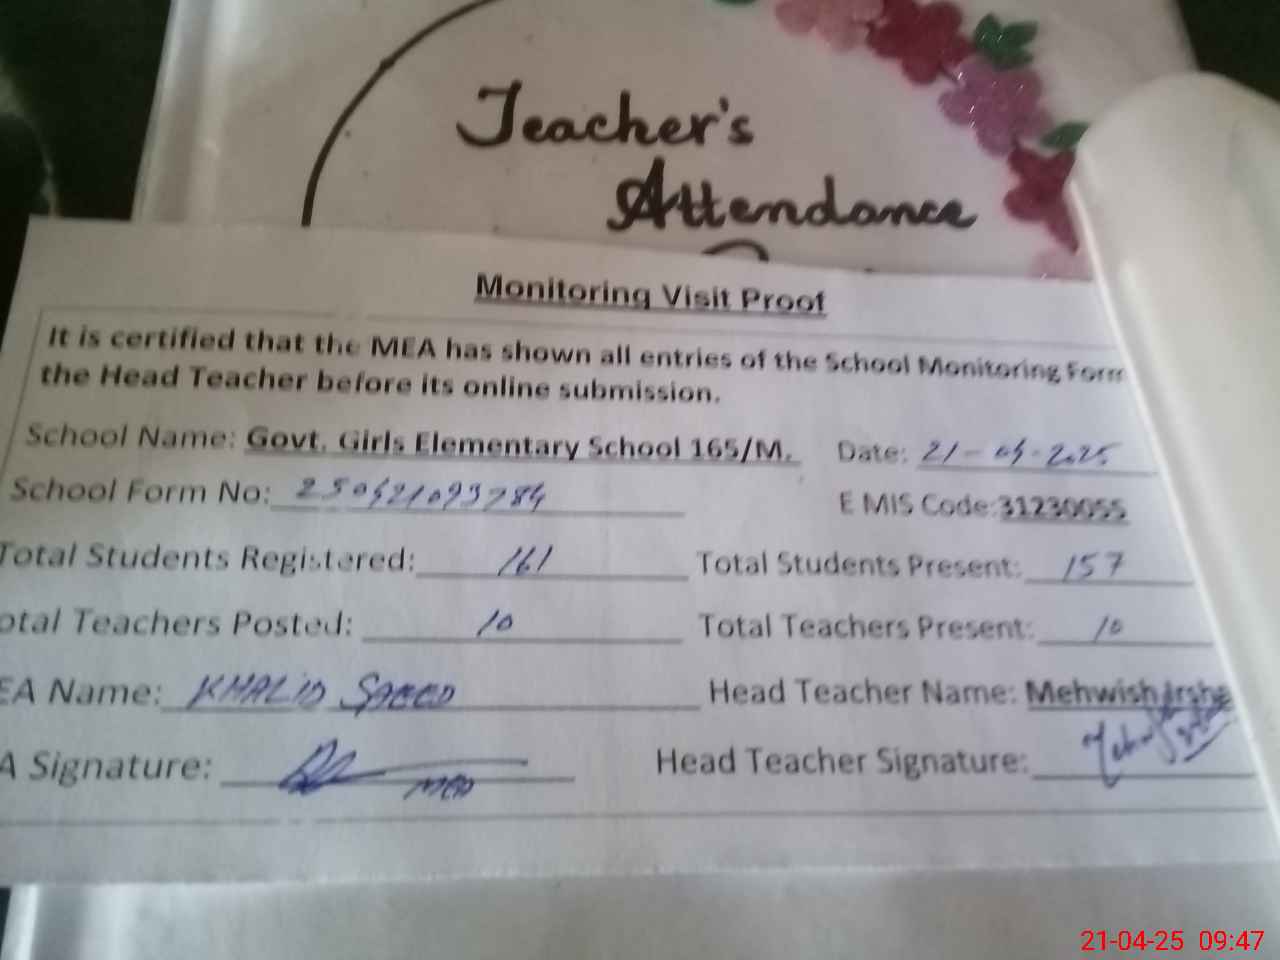 Teacher's
Attendance
Monitoring Visit Proof
It is certified that the MEA has shown all entries of the School Monitoring Form
the Head Teacher before its online submission.
School Name: Govt. Girls Elementary School 165/M. Date: 21-04-2025
School Form No: 250421093784 E MIS Code:31230055
Total Students Registered: 161 Total Students Present: 157
otal Teachers Posted: 10 Total Teachers Present: 10
EA Name: KHALID SAEED Head Teacher Name: Mehwish Irsha
A Signature: Head Teacher Signature:
21-04-25 09:47